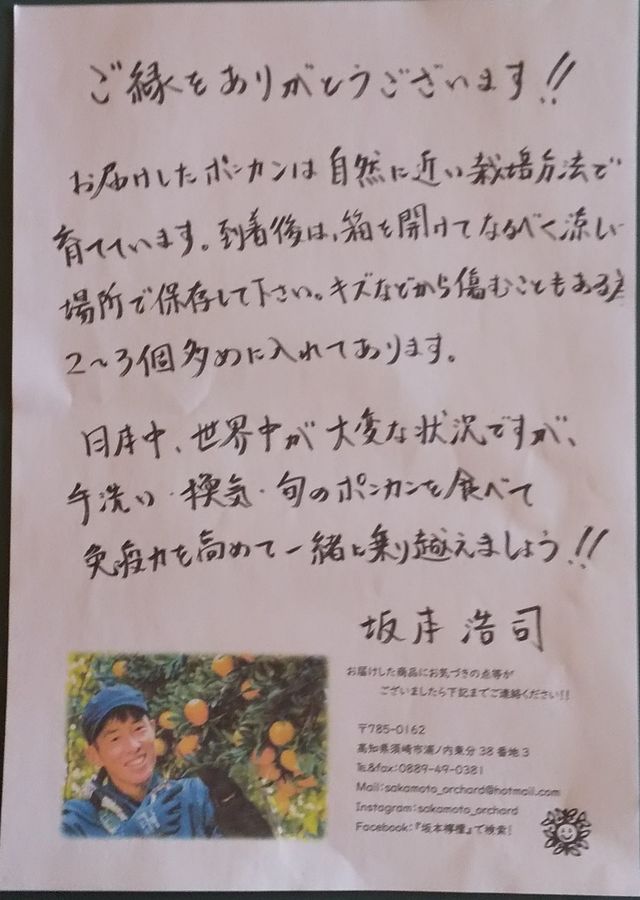 ご縁をありがとうございます!!
お届けしたポンカンは自然に近い栽培方法で
育てています。到着後は、箱を開けてなるべく涼しい
場所で保存して下さい。キズなどから傷むこともある為
2~3個多めに入れてあります。
日本中、世界中が大変な状況ですが、
手洗い・換気・旬のポンカンを食べて
免疫力を高めて一緒に乗り越えましょう!!
坂本浩司
お届けした商品にお気づきの点等が
ございましたら下記までご連絡ください!!
〒785-0162
高知県須崎市浦ノ内東分38番地3
Tel&fax:0889-49-0381
Mail:sakamoto_orchard@hotmail.com
Instagram:sakamoto_orchard
Facebook:『坂本檸檬』で検索!